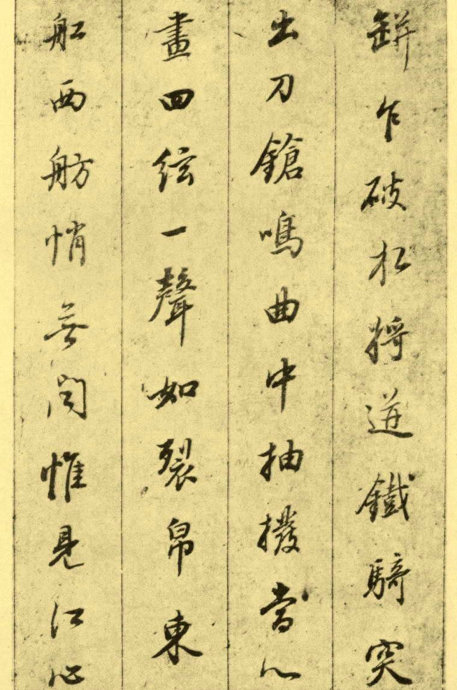 缾乍破水漿迸鐵騎突
出刀鎗鳴曲中抽撥當心
畫四絃一聲如裂帛東
舡西舫悄無聞惟見江心